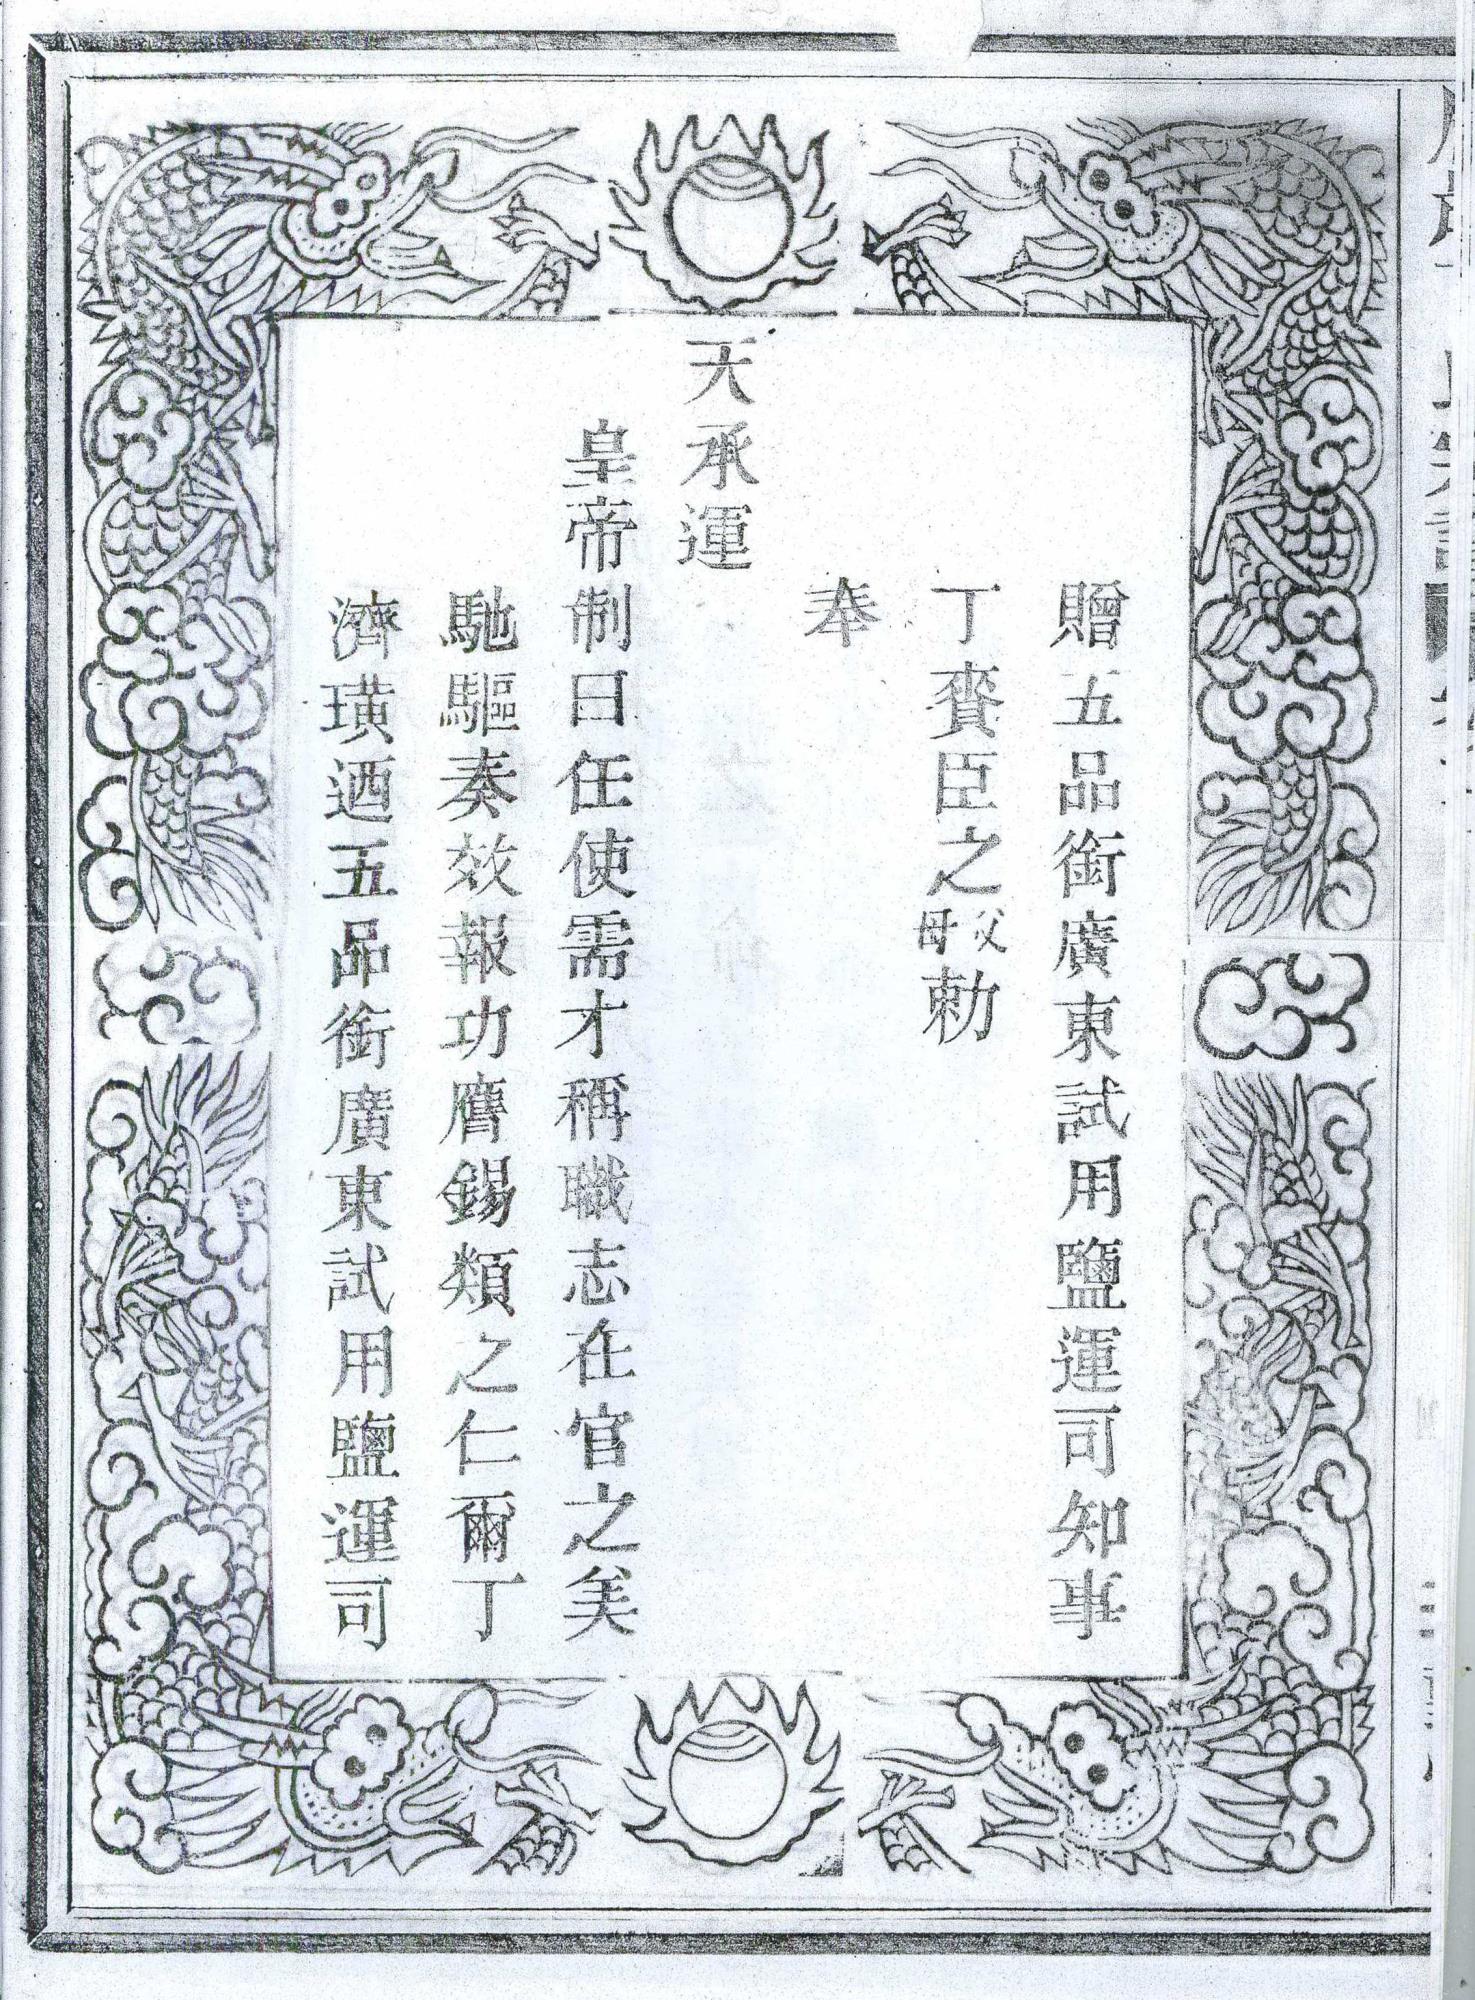 贈五品銜廣東試用鹽運司知事
丁賚臣之父母勅
奉
天承運
皇帝制曰任使需才稱職志在官之美
馳驅奏效報功膺錫類之仁爾丁
濟璜迺五品銜廣東試用鹽運司